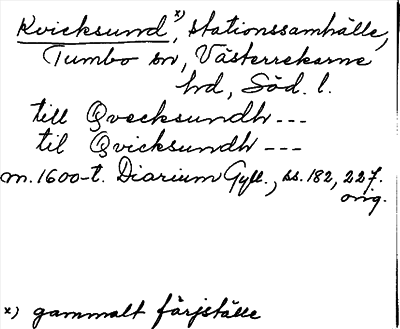 Kvicksund x), stationssamhälle,
Tumbo sn, Västerrekarne
hd, Söd. l.
till Qvecksundh ---
til Qvicksundh ---
m. 1600-t. Diarium Gyll., ss. 182, 227.
orig.
x) gammalt färjställe